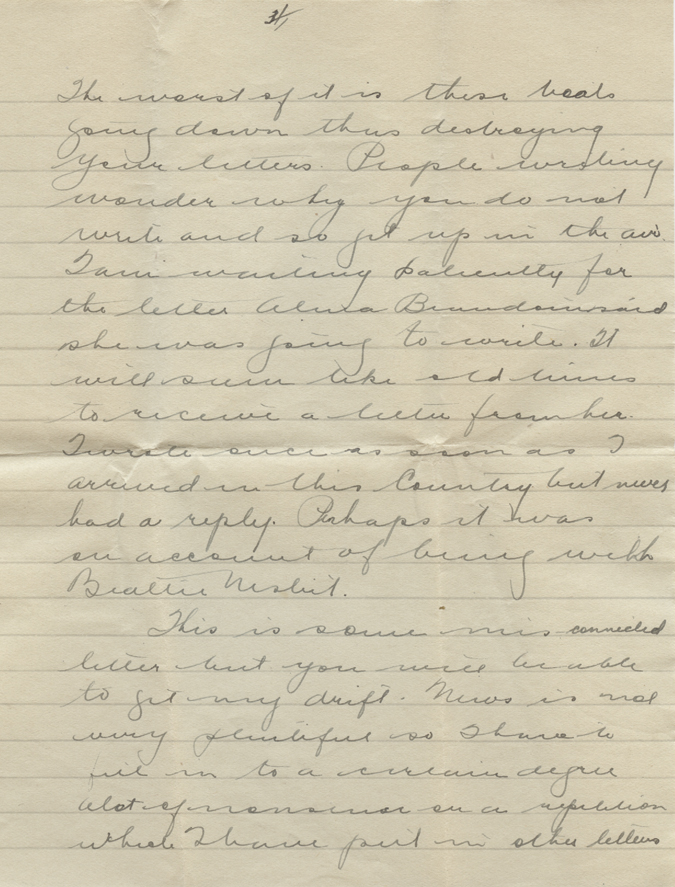 3/
The worst of it is these boats
going down thus destroying
your letters. People writing
wonder why you do not
write and so get up in the air.
I am waiting patiently for
the letter Alma said
she was going to write. It
will seem like old times
to receive a letter from her.
I wrote once as soon as I
arrived in this Country but never
had a reply. Perhaps it was
on account of being with
Beattie Nesbit.
This is some mis connected
letter but you will be able
to get my drift. News is not
very plentiful so I have to
fill in to a certain degree
alot of nonsense or a repetition
which I have put in other letters